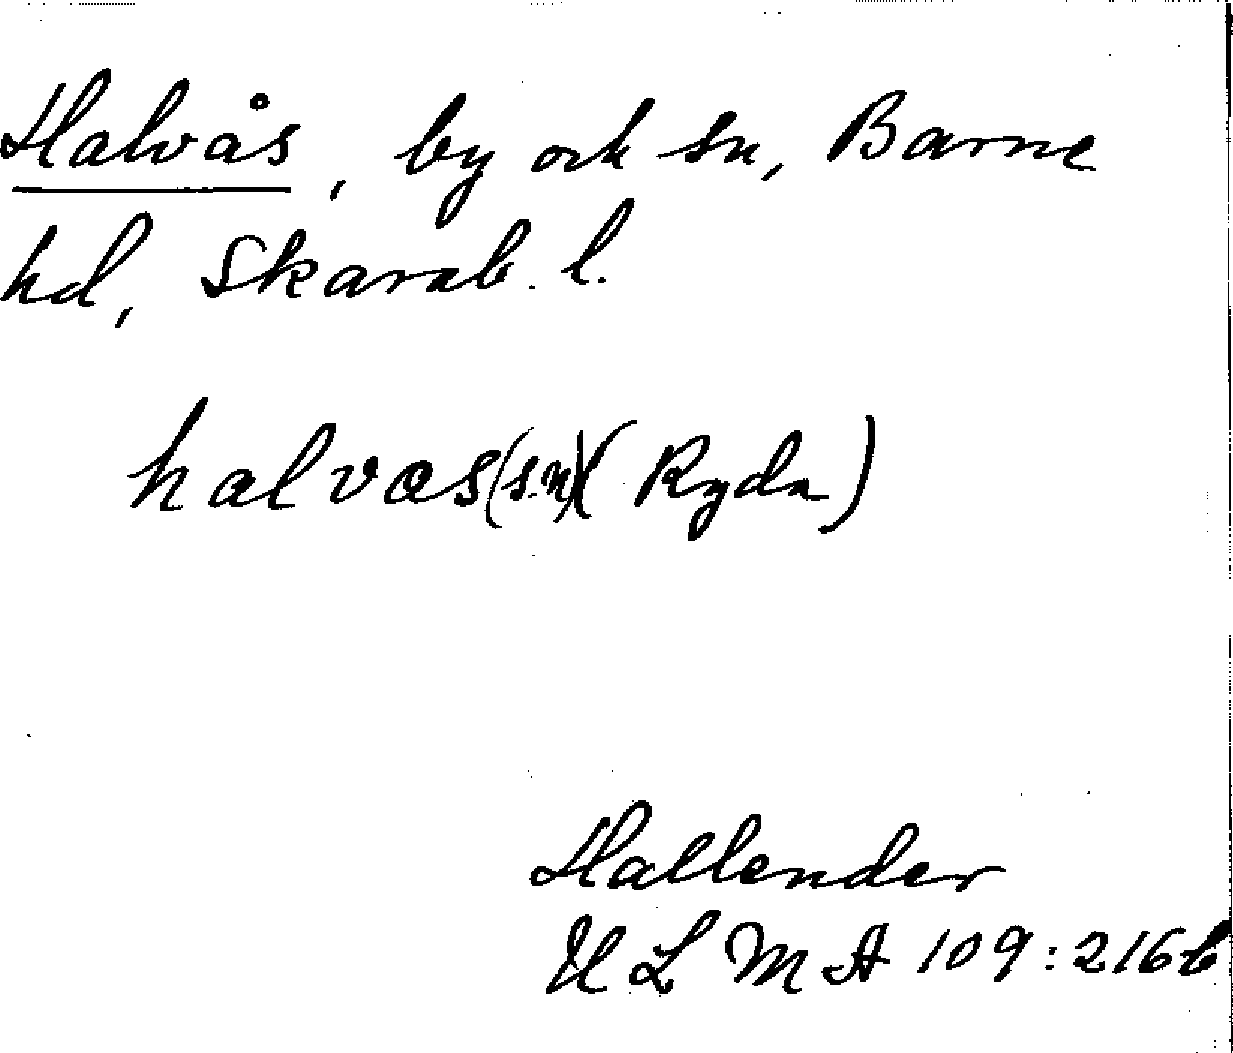 Halvås, by och sn, Barne
hd, Skarab. l.
halvas(sn)(Ryda)
Hallender
ULMA 109:216b